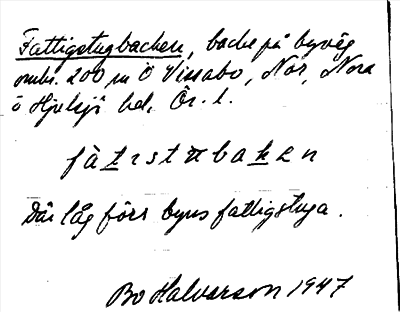 Fattigstugbacken, backe på byväg
omkr. 200 m Ö Vissabo, Nor, Nora
o Hjulsjö hd, Ör. l.
fàtıstπbakεn
Där låg förr byns fattigstuga.
Bo Halvarson 1947